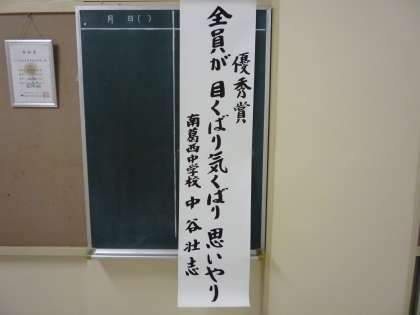 優秀賞
全員が 目くばり気くばり 思いやり
南葛西中学校 中谷壮志
月 日( )